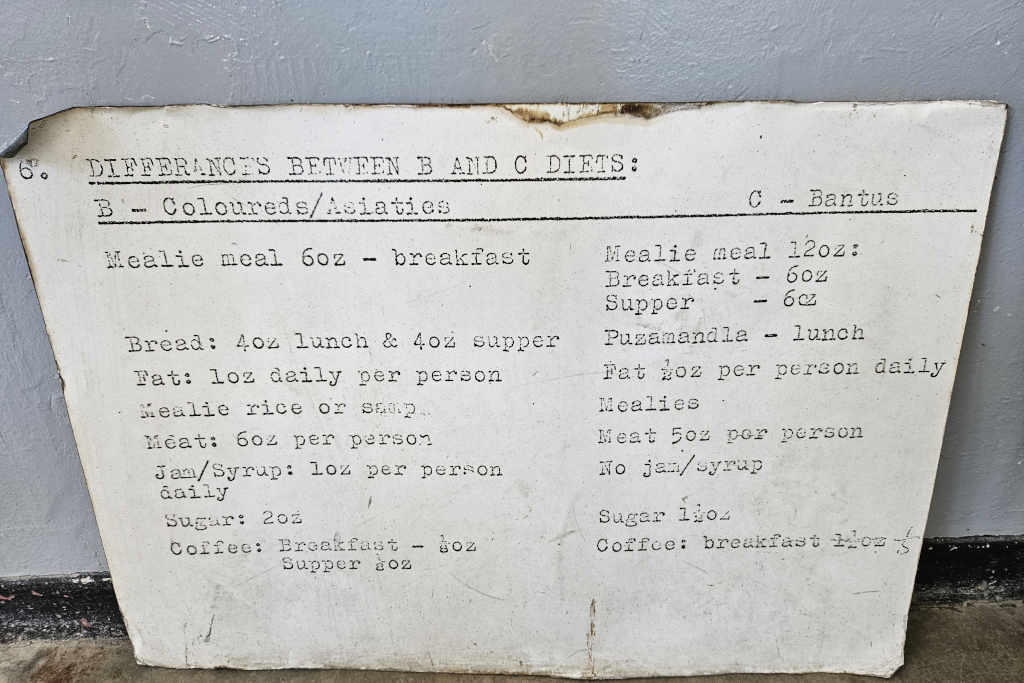 6. DIFFERANCES BETWEEN B AND C DIETS:
B - Coloureds/Asiaties
C - Bantus
Mealie meal 6oz - breakfast
Mealie meal 12oz:
Breakfast - 6oz
Supper - 6oz
Bread: 4oz lunch & 4oz supper
Puzamandla - lunch
Fat: 1oz daily per person
Fat ½oz per person daily
Mealie rice or samp
Mealies
Meat: 6oz per person
Meat 5oz per person
Jam/Syrup: 1oz per person
daily
No jam/syrup
Sugar: 2oz
Sugar 1½oz
Coffee: Breakfast - oz
Supper oz
Coffee: breakfast